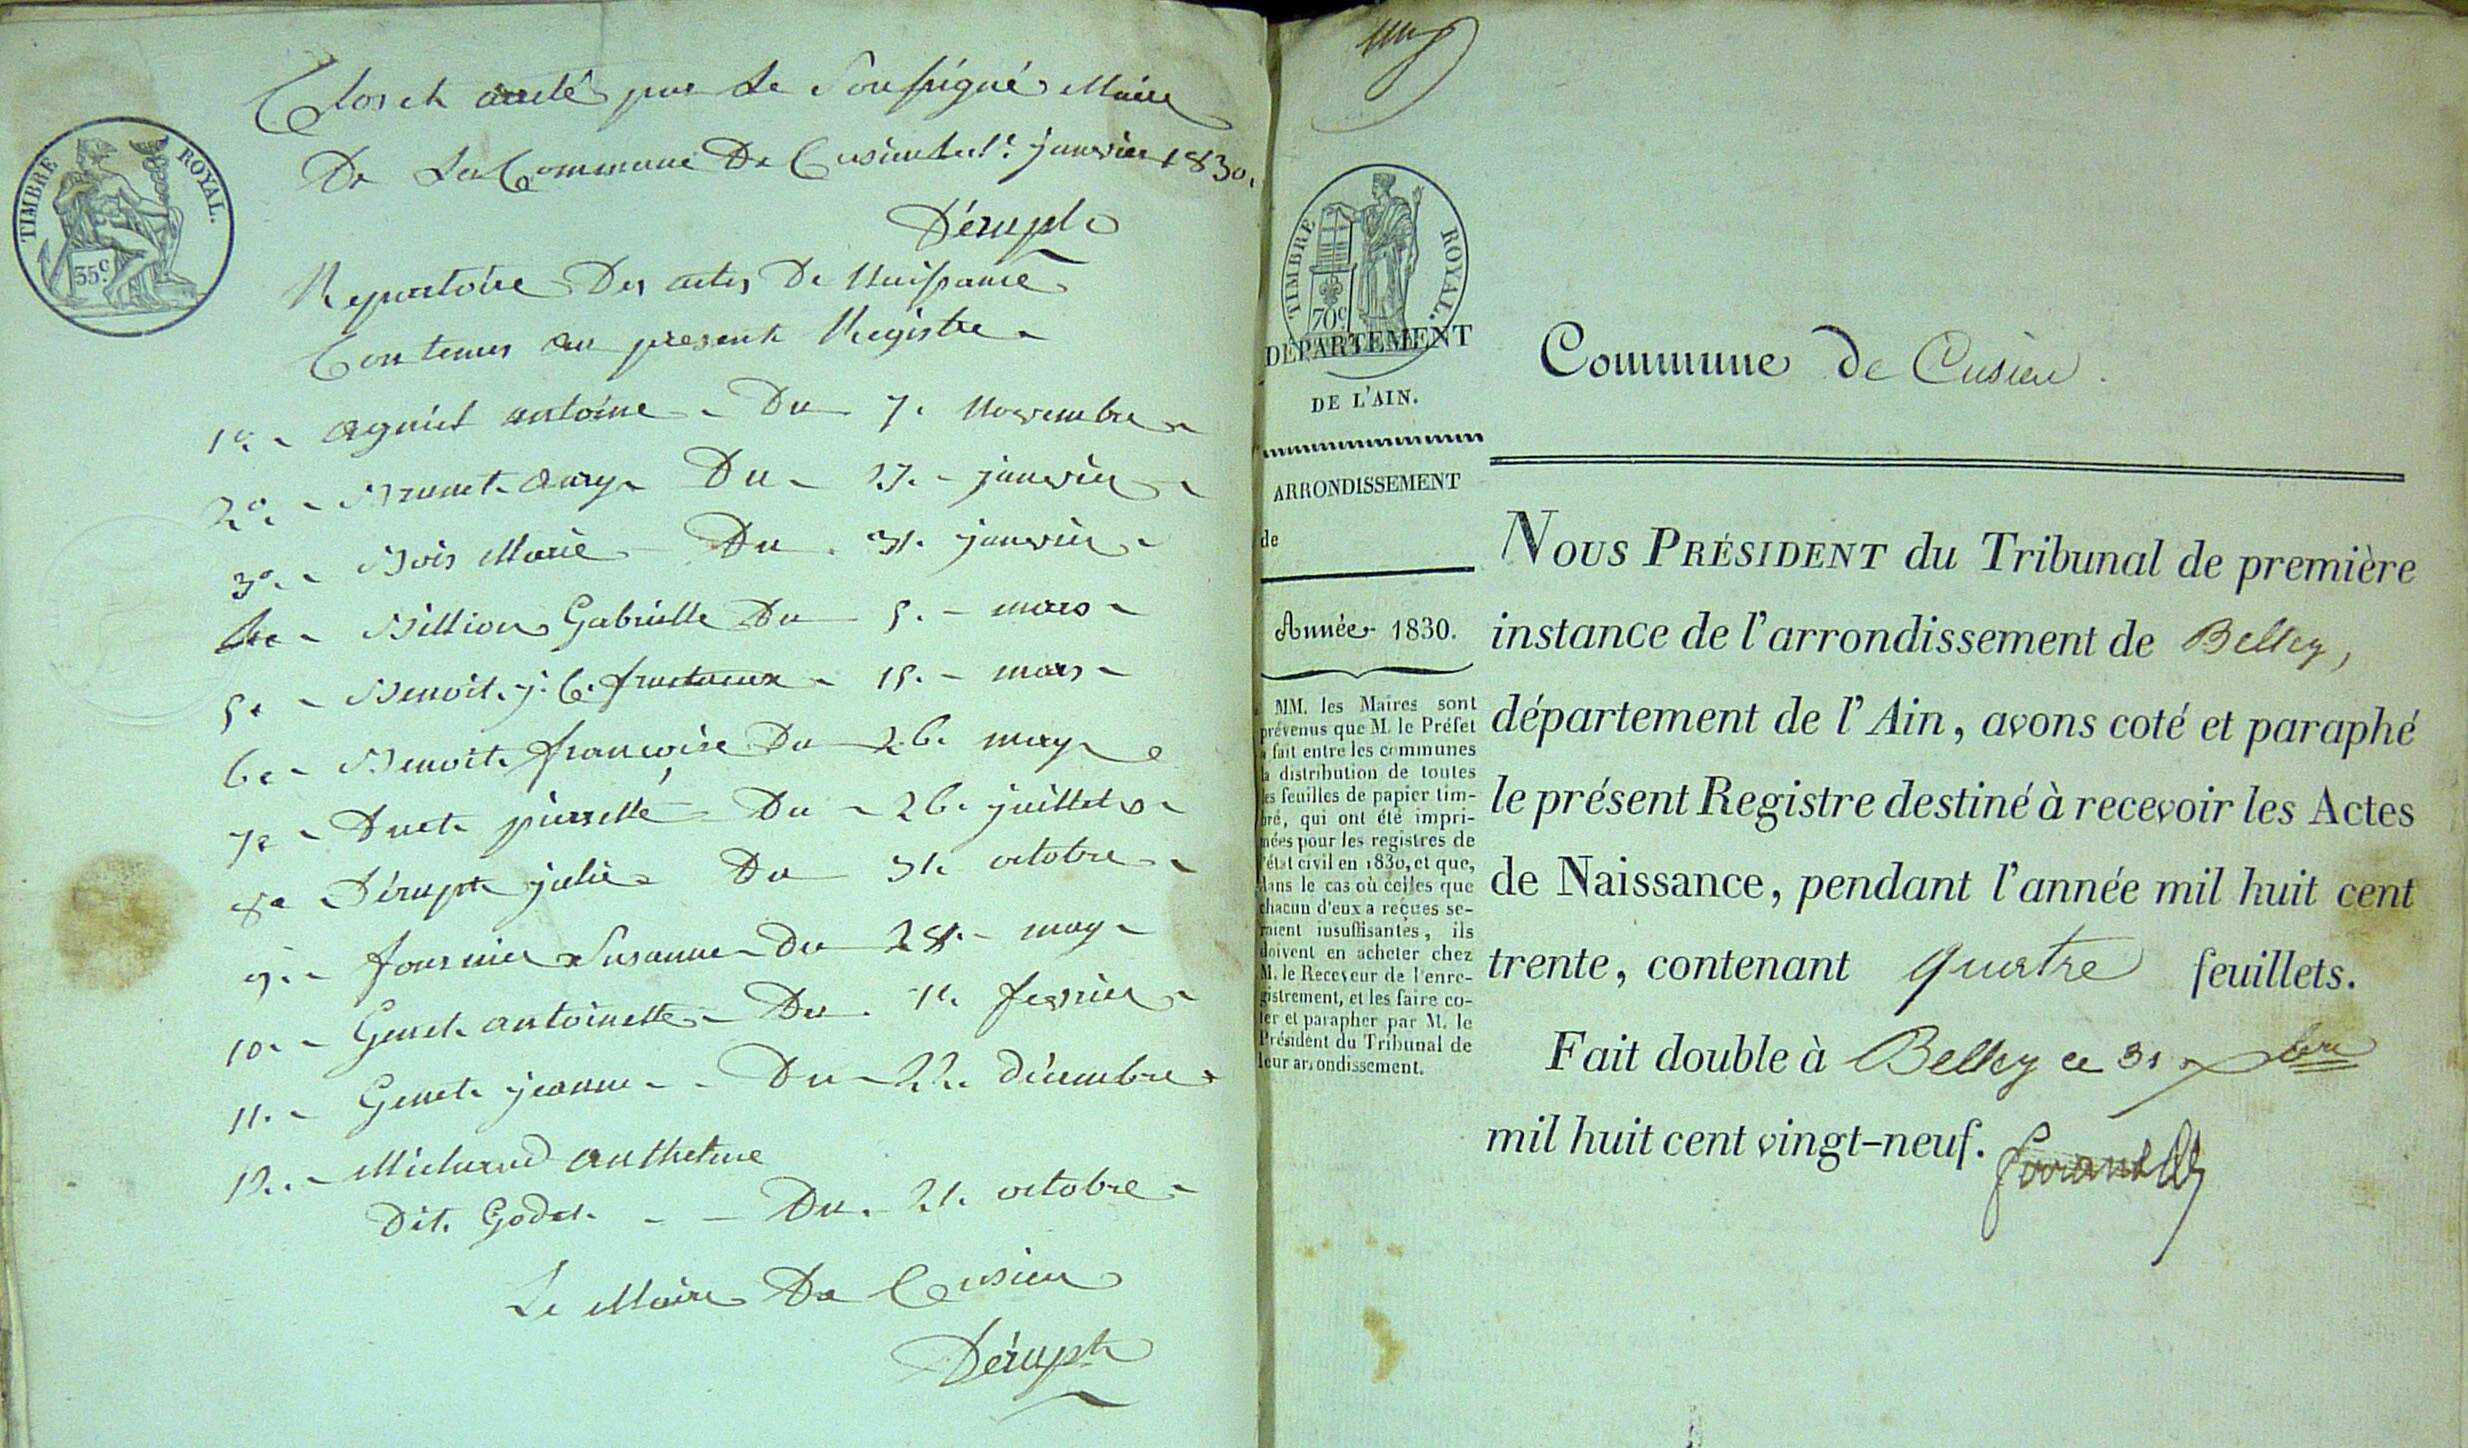 TIMBRE ROYAL.
35c
Clos et arreté par Le Soussigné Maire
De La Commune De Cusieu Le 1er janvier 1830.
Dérupt
Repertoire Des actes De Naissance
Contenus au present Registre
1o. Agniel antoine - Du 7. Novembre
2o. Brunet Du janvier
3o. Bois Marie - Du 31. janvier
4e Billion Gabrielle Du 5. mars
5e Benoit j. C. fructueux 15. mars
6e Benoit francoise Du 26. may
7e Duet pierrette Du 26. juillet
8e Dérupt julie Du 31. octobre
9. fournier Susanne Du may
10. Genet antoinette Du 1er. fevrier
11. Genet jeanne Du 22. décembre
12. Michaud anthelme
Dit Godet - Du 21. octobre
Le Maire De Cusieu
Dérupt
TIMBRE ROYAL.
70c
DÉPARTEMENT
DE L'AIN.
ARRONDISSEMENT
de
Année 1830.
MM. les Maires sont
prévenus que M. le Préfet
a fait entre les communes
la distribution de toutes
les feuilles de papier tim-
bré, qui ont été impri-
mées pour les registres de
l'état civil en 1830, et que,
dans le cas où celles que
chacun d'eux a reçues se-
raient insuffisantes, ils
doivent en acheter chez
M. le Receveur de l'enre-
gistrement, et les faire co-
ter et parapher par M. le
Président du Tribunal de
leur arrondissement.
Commune de Cusieu.
NOUS PRÉSIDENT du Tribunal de première
instance de l'arrondissement de Belley,
département de l'Ain, avons coté et paraphé
le présent Registre destiné à recevoir les Actes
de Naissance, pendant l'année mil huit cent
trente, contenant quatre feuillets.
Fait double à Belley ce 31 xbre
mil huit cent vingt-neuf.